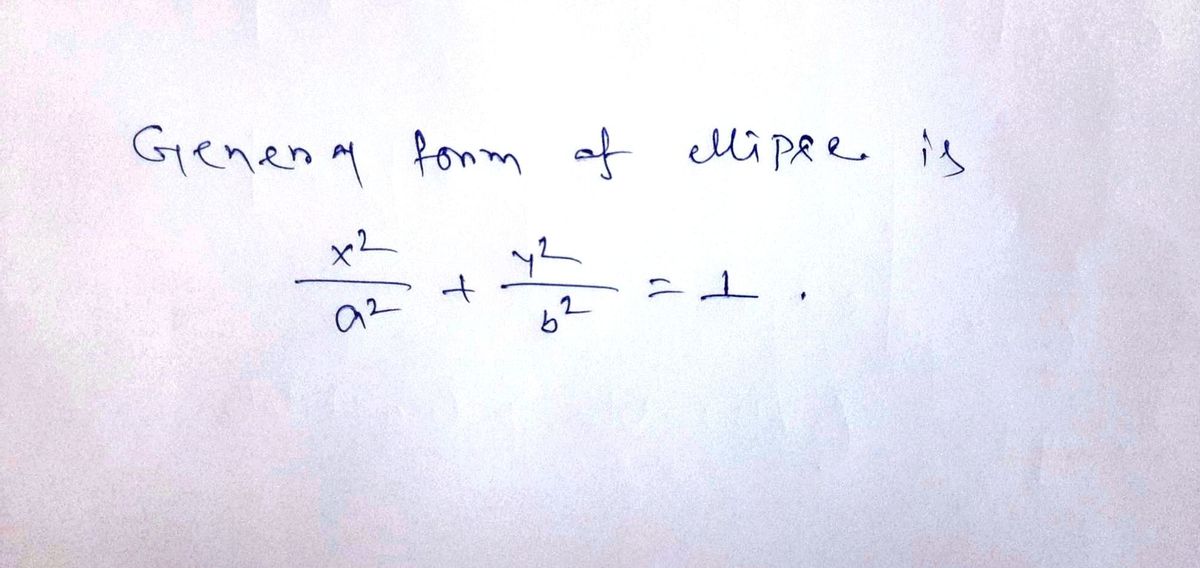 General form of ellipse is
x²/a² + y²/b² = 1.